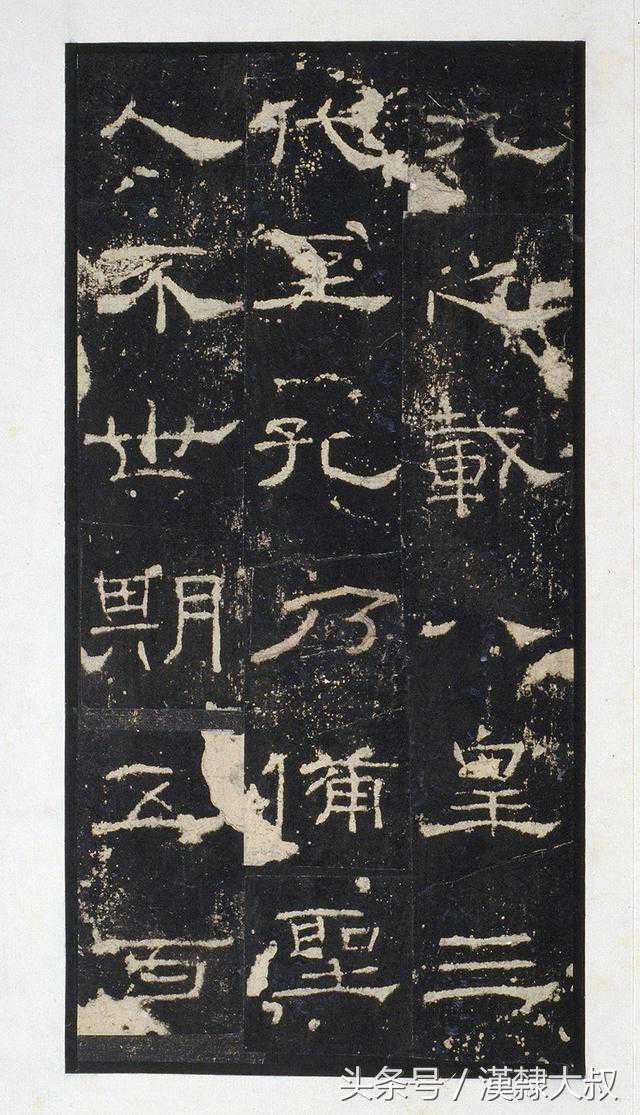 九之載八皇三
代至孔乃備聖
人不世期五百
头条号/漢隸大叔